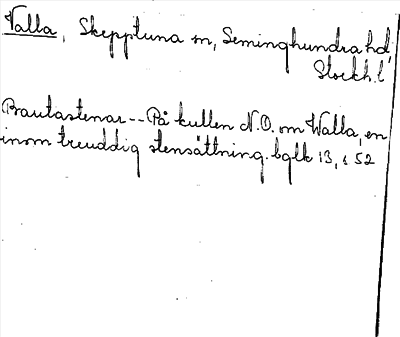 Valla, Skepptuna sn, Seminghundra hd,
Stockh. l.
Brautastenar -- På kullen N.O. om Walla, en
inom treuddig stensättning. bglk 13, s 52